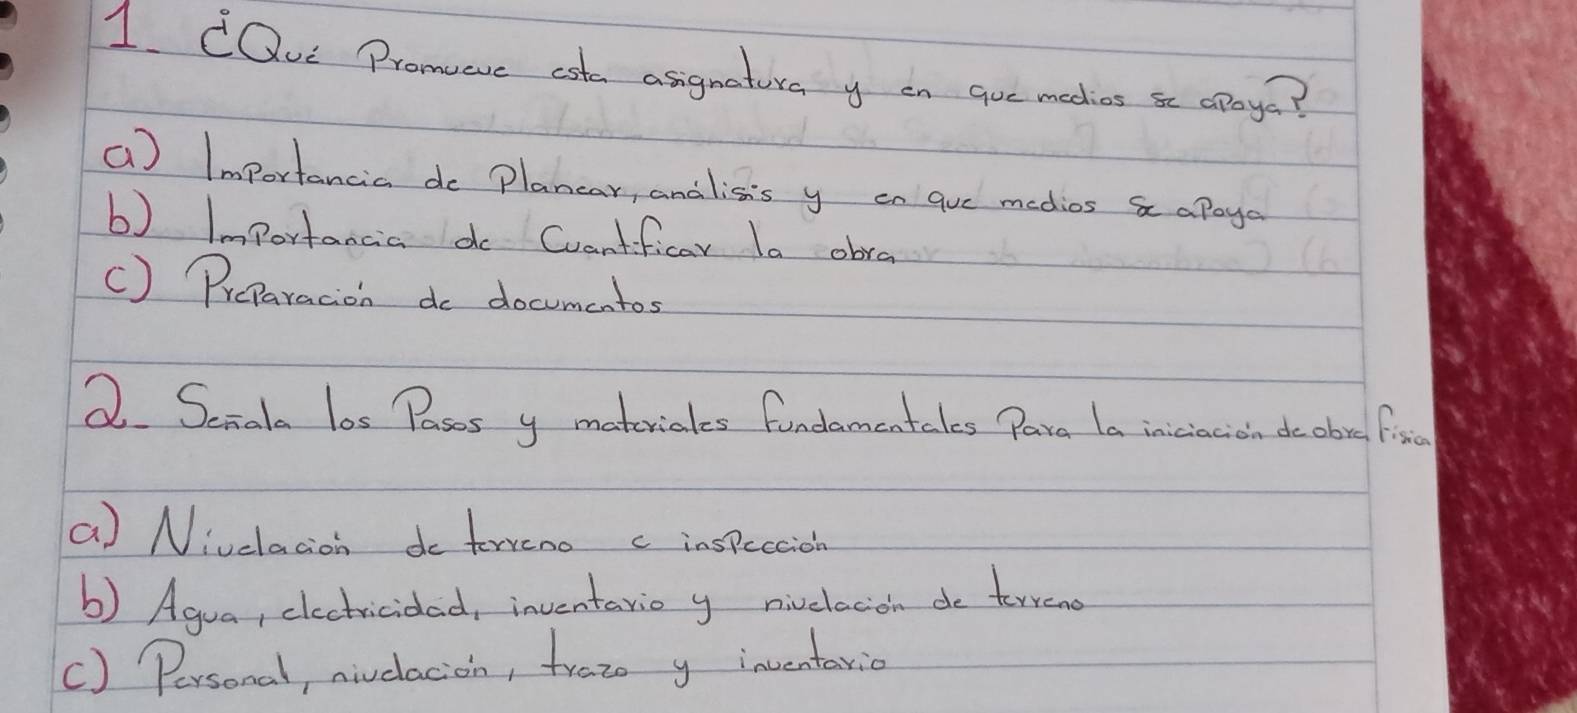 1. ¿Qué Promueve esta asignatura y en que medios se apoya?
a) Importancia de Planear, análisis y en que medios se apoya
b) Importancia de Cuantificar la obra
c) Preparación de documentos
2. Señala los Pasos y materiales fundamentales Para la iniciación de obra física
a) Nivelación de terreno e inspección
b) Agua, electricidad, inventario y nivelación de terreno
c) Personal, nivelación, trazo y inventario